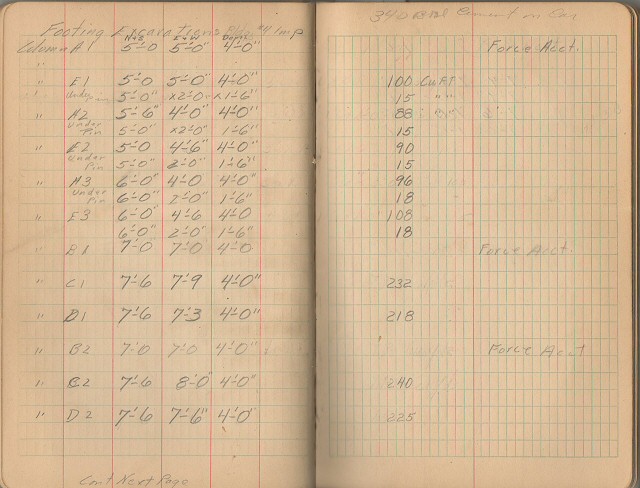 Footing Excavations Bldg #4 Imp
340 Bbl Cement on Car
N+S E+W Depth
Column A1 5'-0 5'-0" 4'-0" Force Acct.
"
" E1 5'-0 5'-0" 4'-0" 100 Cu FT
" Under pin 5'-0" x2'-0" x1'-6" 15 " "
" A2 5'-6" 4'-0" 4'-0" 88
Under Pin 5'-0" x2'-0" 1'-6" 15
" E2 5'-0 4'-6" 4'-0" 90
Under Pin 5'-0" 2'-0" 1'-6" 15
" A3 6'-0" 4'-0 4'-0" 96
Under Pin 6'-0" 2'-0" 1'-6" 18
" E3 6'-0" 4'-6 4'-0 108
6'-0" 2'-0" 1'-6" 18
" B1 7'-0 7'-0 4'-0 Force Acct.
" C1 7'-6 7'-9 4'-0" 232
" D1 7'-6 7'-3 4'-0" 218
" B2 7'-0 7'-0 4'-0" Force Acct
" C2 7'-6 8'-0" 4'-0" 240
" D2 7'-6 7'-6" 4'-0" 225
Cont Next Page